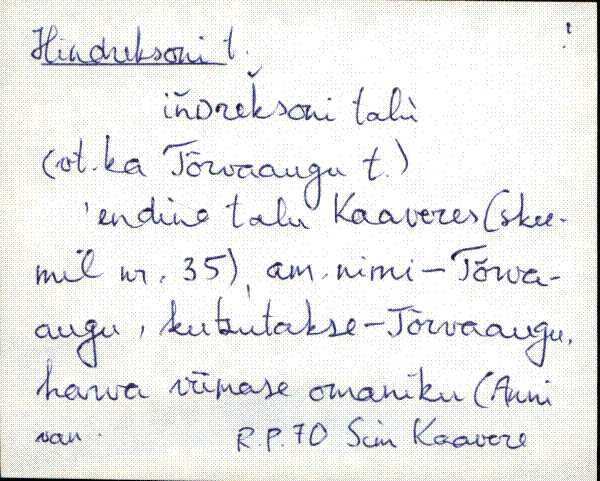 Hindreksoni t. !
iňDreǩsoni talù
(vt. ka Tõrvaaugu t.)
'endine talu Kaaveres (skee-
mil nr. 35), am. nimi – Tõrva-
augu, kutsutakse – Tõrvaaugu,
harva viimase omaniku (Anni
van. R.P. 70 Sim Kaavere